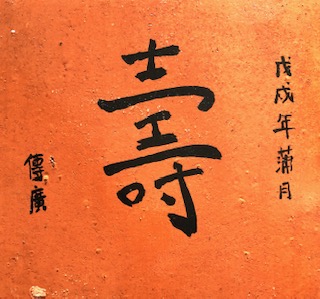 戊戌年蒲月
壽
傳廣